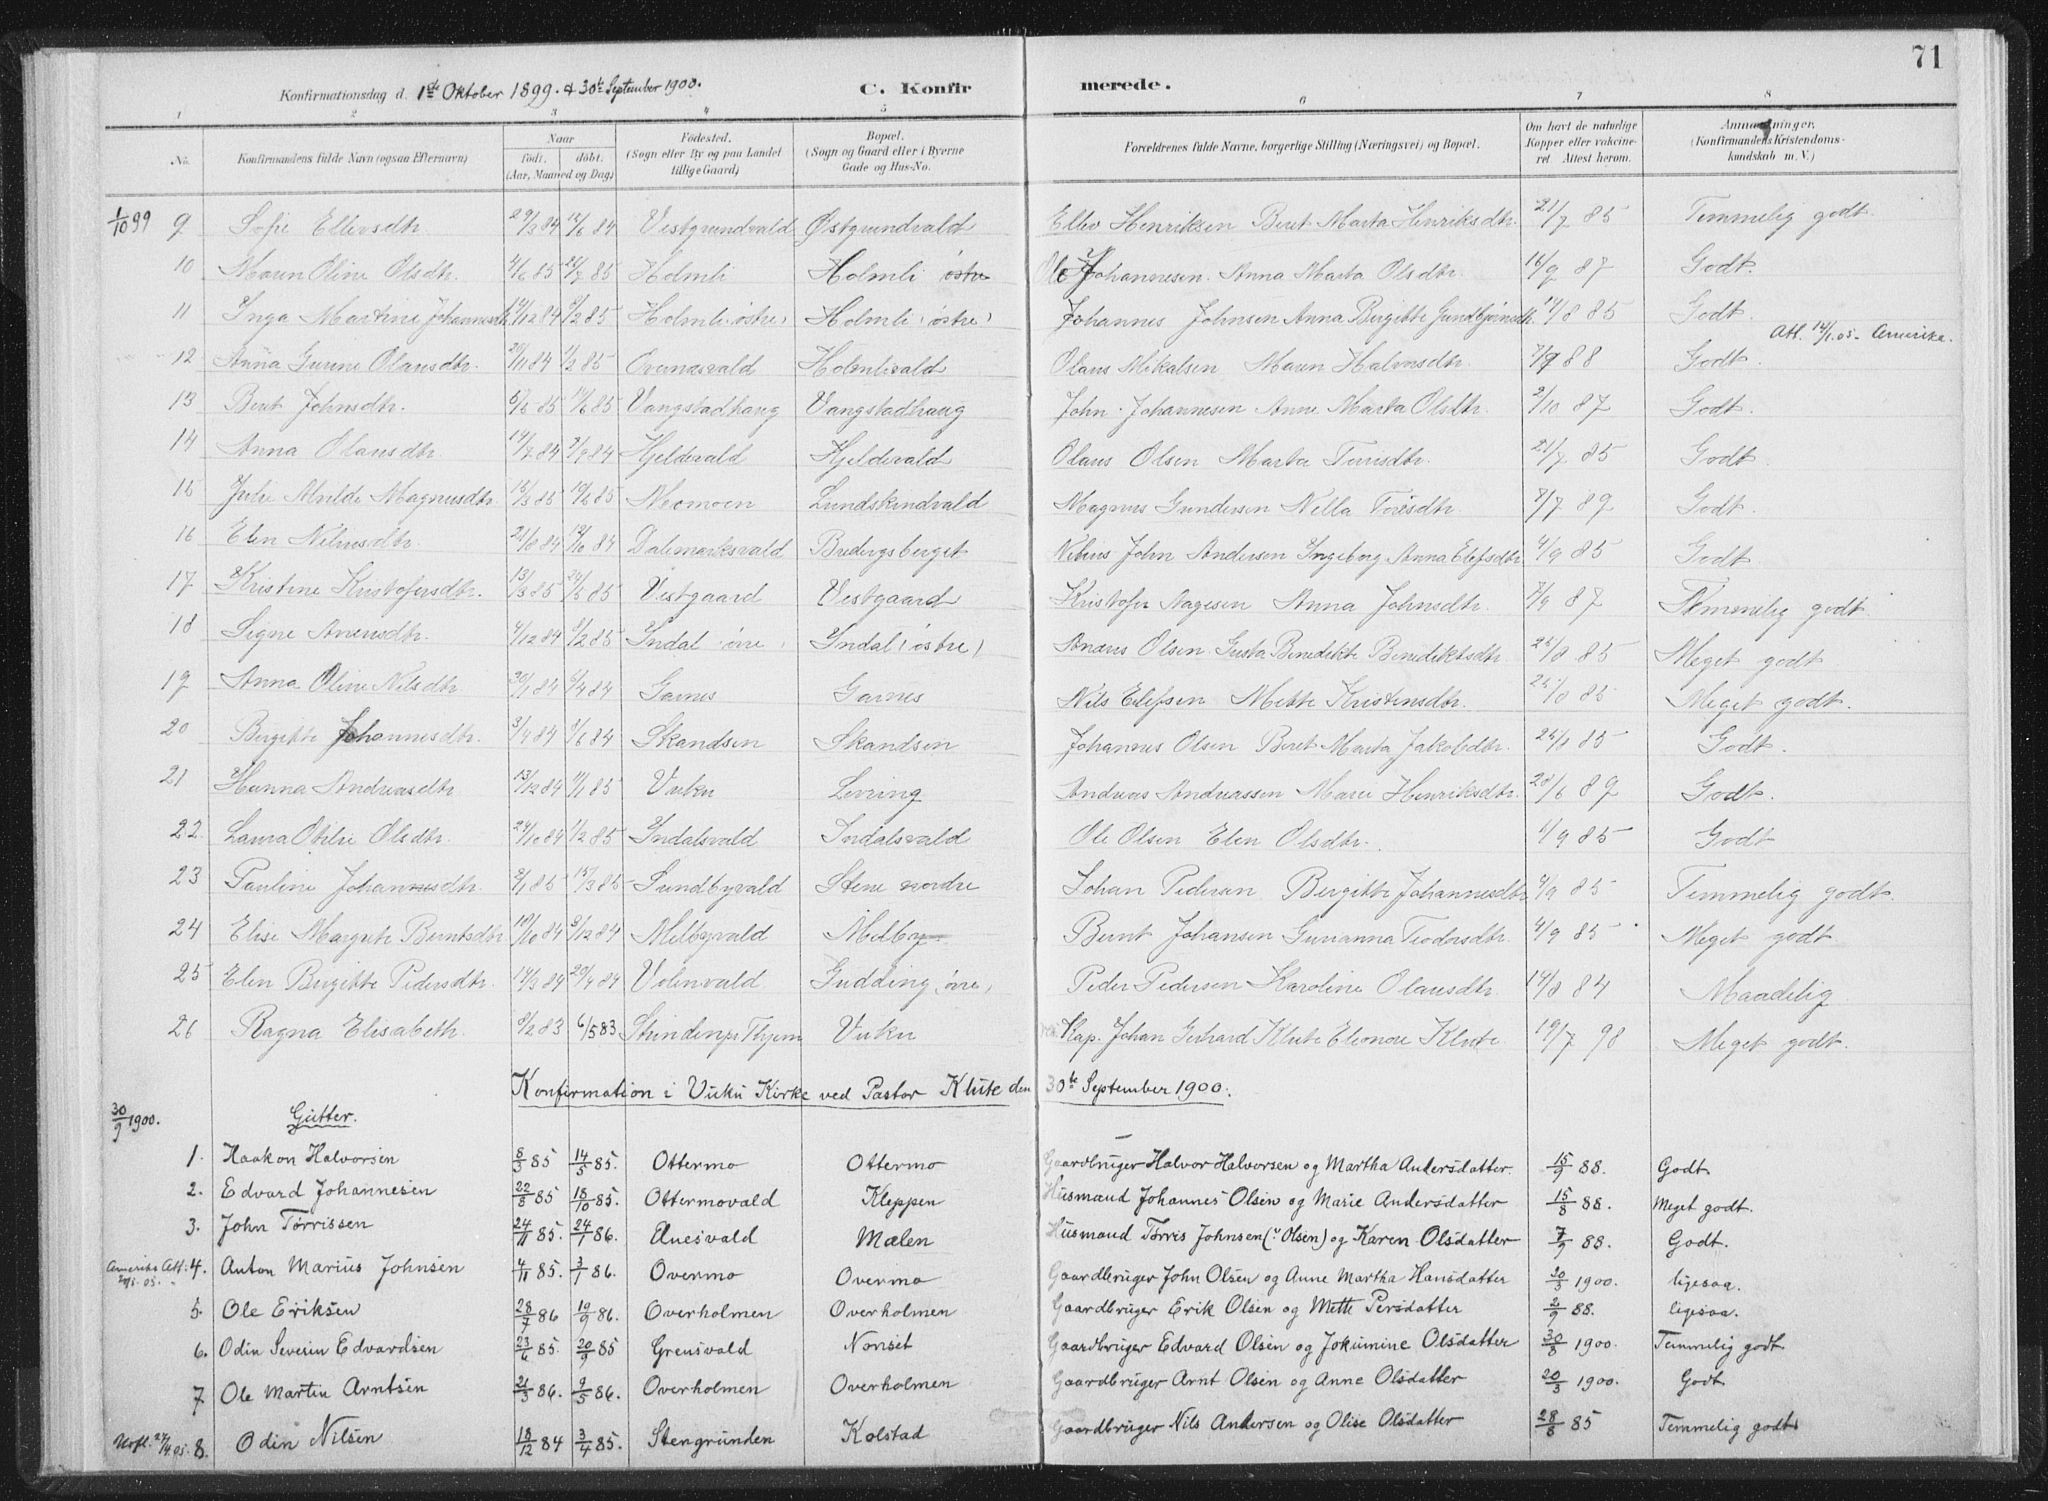 71
Konfirmationsdag d. 1ste Oktober 1899. & 30te September 1900. C. Konfirmerede.
1 2 3 4 5 6 7 8
No. Konfirmandens fulde Navn (ogsaa Efternavn) Naar født. døbt. (Aar, Maaned og Dag) Fødested. (Sogn eller By og paa Landet tillige Gaard) Bopæl. (Sogn og Gaard eller i Byerne Gade og Hus-No. Forældrenes fulde Navne, borgerlige Stilling (Næringsvei) og Bopæl. Om havt de naturlige Kopper eller vakcineret. Attest herom. Anmærkninger, (Konfirmandens Kristendomskundskab m. V.)
1/10 99 9 Sofie Ellevsdtr. 29/3 84 12/6 84 Vestgrundvald Østgrundvald Ellev Henriksen Beret Marta Henriksdtr. 21/7 85 Temmelig godt.
10 Maren Oline Olsdtr. 4/6 85 26/7 85 Holmli Holmli østre Ole Johannesen. Anna Marta Olsdtr. 16/9 87 Godt.
11 Inga Martine Johannesdtr. 14/12 84 8/2 85 Holmli (østre) Holmli (østre) Johannes Johnsen Anna Birgitte Gundbjørnsdtr. 14/8 85 Godt.
Att. 14/1.05 - Amerika.
12 Anna Gurine Olausdtr. 20/11 84 1/2 85 Overnesvald Holmlivald Olaus Mikalsen Maren Halvorsdtr. 7/9 88 Godt.
13 Beret Johnsdtr. 5/5 85 11/6 85 Vangstadhaug Vangstadhaug John Johannesen Anne Marta Olsdtr. 2/10 87 Godt.
14 Anna Olausdtr. 14/7 84 7/9 84 Hjeldevald Hjeldevald Olaus Olsen Marta Tomsdtr. 21/7 85 Godt.
15 Julie Alvilde Magnusdtr. 15/3 85 10/5 85 Momoen Lundskindvald Magnus Gundersen Nella Toresdtr. 7/7 89 Godt.
16 Elen Niliusdtr. 21/8 84 12/10 84 Dalemarksvald Bredingsberget Nilius John Andersen Ingeborg Anna Elefsdtr. 4/9 85 Godt
17 Kristine Kristofersdtr. 13/3 85 24/5 85 Vestgaard Vestgaard Kristofer Aagesen Anna Johnsdtr. 7/9 87 Temmelig godt.
18 Signe Aneusdtr. 4/12 84 8/2 85 Indal øvre Indal (østre) Anæus Olsen Gusta Benedikte Benediktsdtr. 25/8 85 Meget godt.
19 Anna Oline Nilsdtr. 30/1 84 6/4 84 Garnes Garnes Nils Elefsen Mette Kristensdtr. 25/8 85 Meget godt.
20 Birgitte Johannesdtr. 3/4 84 8/6 84 Skandsen Skandsen Johannes Olsen Beret Marta Jakobsdtr. 25/8 85 Godt.
21 Hanna Andreasdtr. 13/12 84 11/1 85 Vuku Levring Andreas Andreassen Marie Henriksdtr. 28/6 89 Godt.
22 Laura Otilie Olsdtr. 24/10 84 1/2 85 Indalsvald Indalsvald Ole Olsen Elen Olsdtr. 1/9 85 Godt
23 Pauline Johannesdtr. 2/1 85 15/3 85 Sundbyvald Stene nordre Johan Pedersen Birgitte Johannesdtr. 4/9 85 Temmelig godt.
24 Elise Margrete Berntsdtr. 10/10 84 3/12 84 Melbyvald Melby Bernt Johansen Gurianna Teodorsdtr. 4/9 85 Meget godt.
25 Elen Birgitte Pedersdtr. 14/3 84 20/4 84 Volenvald Gudding øvre Peder Pedersen Karoline Olausdtr. 14/8 84 Maadelig
26 Ragna Elisabeth. 8/2 83 6/5 83 Vuku Kap. Johan Gerhard Klute Eleonore Klute. 19/7 98 Meget godt.
Konfirmation i Vuku Kirke ved Pastor Klute den 30te September 1900.
30/9 1900. Gutter.
1. Haakon Halvorsen 8/3 85 14/5 85. Ottermo Ottermo Gaardbruger Halvor Halvorsen og Martha Andersdatter. 15/9 88. Godt.
2. Edvard Johannesen 22/8 85 18/10 85. Ottermovald Kleppen Husmand Johannes Olsen og Marie Andersdatter 15/8 88. Meget godt.
3. John Tørrissen 24/11 85. 24/1 86. Elnesvald Mælen Husmand Tørris Johnsen (v Olsen) og Karen Olsdatter 7/9 88. Godt.
Amerika Att: 20/1.05. 4. Anton Marius Johnsen 4/11 85. 3/1 86. Overmo Overmo Gaardbruger John Olsen og Anne Martha Hansdatter 20/3 1900. ligesaa.
5. Ole Eriksen 28/7 86 19/9 86. Overholmen Overholmen Gaardbruger Erik Olsen og Mette Persdatter 2/9 88. ligesaa.
6. Odin Severin Edvardsen 23/6 85. 20/9 85 Grensvald Nonset Gaardbruger Edvard Olsen og Jokumine Olsdatter 30/8 1900. Temmelig godt.
7 Ole Martin Arntsen 21/3 86. 9/5 86. Overholmen Overholmen Gaardbruger Arnt Olsen og Anne Olsdatter 20/3 1900. Godt
Utfl. 27/4 05. 8. Odin Nilsen 18/12 84 3/4 85. Stengrunden Kolstad Gaardbruger Nils Andersen og Olise Olsdatter 28/8 85 Temmelig godt